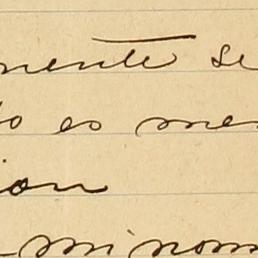 mente se
o es me
ion
mi nom